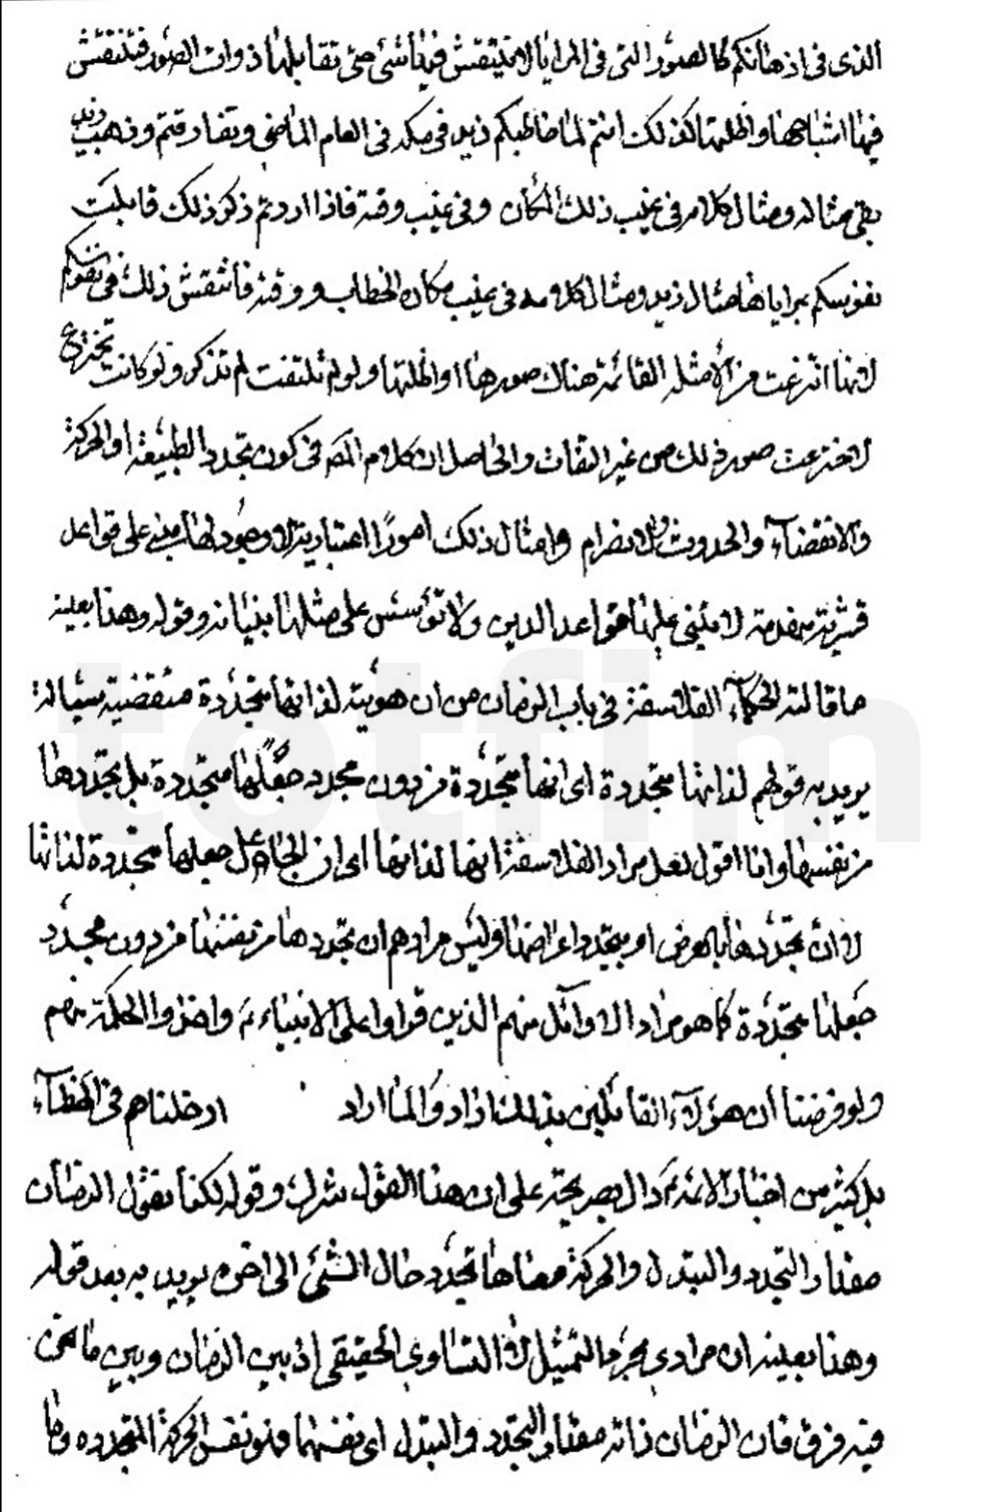 الذى فى اذهانكم كالصور التى فى المرايا لا ينتقش فيها شئ حتى تقابلها ذوات الصور فتنتقش
فيها اشباحها واظلتها كذلك انتم لما خاطبكم زيد فى مكة فى العام الماضى وتفارقتم وذهب زيد
بقى مثاله ومثال كلامه فى غيب ذلك المكان وفى غيب وقته فاذا اردتم ذكر ذلك قابلت
نفوسكم بمراياها مثال زيد ومثال كلامه فى غيب مكان الخطاب ووقته فأنتقش ذلك فى نفوسكم
لانها انتزعت من الأمثلة القائمة هناك صورها او اظلتها ولو لم تلتفت لم تذكر ولو كانت تخترع
لاخترعت صور ذلك من غير التفات والحاصل ان كلام المص فى كون تجدد الطبيعة او الحركة
والانقضاء والحدوث والانصرام وامثال ذلك امورًا اعتبارية لا وجود لها مبنى على قواعد
قشرية منهدمة لا يبنى عليها قواعد الدين ولا تؤسس على مثلها بنيانه وقوله وهذا بعينه
ما قالته الحكماء الفلاسفة فى باب الزمان من ان هويته لذاتها متجددة منقضية سيالة
يريد به قولهم لذاتها متجددة اى انها متجددة من دون مجدد جعلها متجددة بل تجددها
من نفسها وانا اقول لعل مراد الفلاسفة انها لذاتها اى ان الجاعل جعلها متجددة لذاتها
لا ان تجددها بالعرض او بتجدد اعراضها وليس مرادهم ان تجددها من نفسها من دون مجدد
جعلها متجددة كما هو مراد الاوائل منهم الذين قراوا على الانبياء ع واخذوا الحكمة منهم
ولو فرضنا ان هؤلاء القائلين بذلك ارادوا لما اراد ادخلناهم فى الخطاء
بل كثير من اخبار الائمة ع دال بصريحه على ان هذا القول شرك وقوله لكنا نقول الزمان
مقدار التجدد والتبدل والحركة معناها تجدد حال الشئ الى اخره يريد به بعد قوله
وهذا بعينه ان مرادى مجرد التمثيل لا التساوى الحقيقى اذ بين الزمان وبين ما نحن
فيه فرق فان الزمان ذاته مقدار التجدد والتبدل اى نفسهما فهو نفس الحركة المتجدده وما